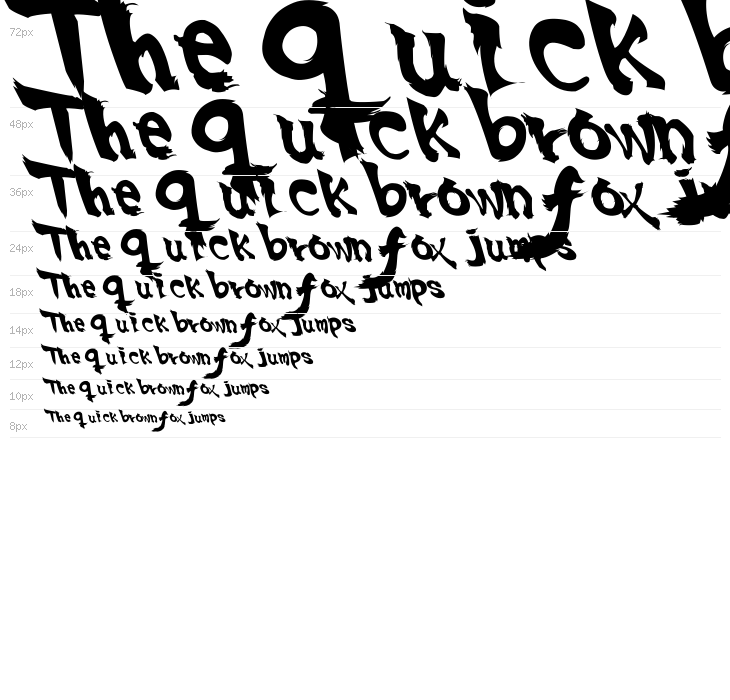 72px The quick b
48px The quick brown f
36px The quick brown fox j
24px The quick brown fox jumps
18px The quick brown fox jumps
14px The quick brown fox jumps
12px The quick brown fox jumps
10px The quick brown fox jumps
8px The quick brown fox jumps